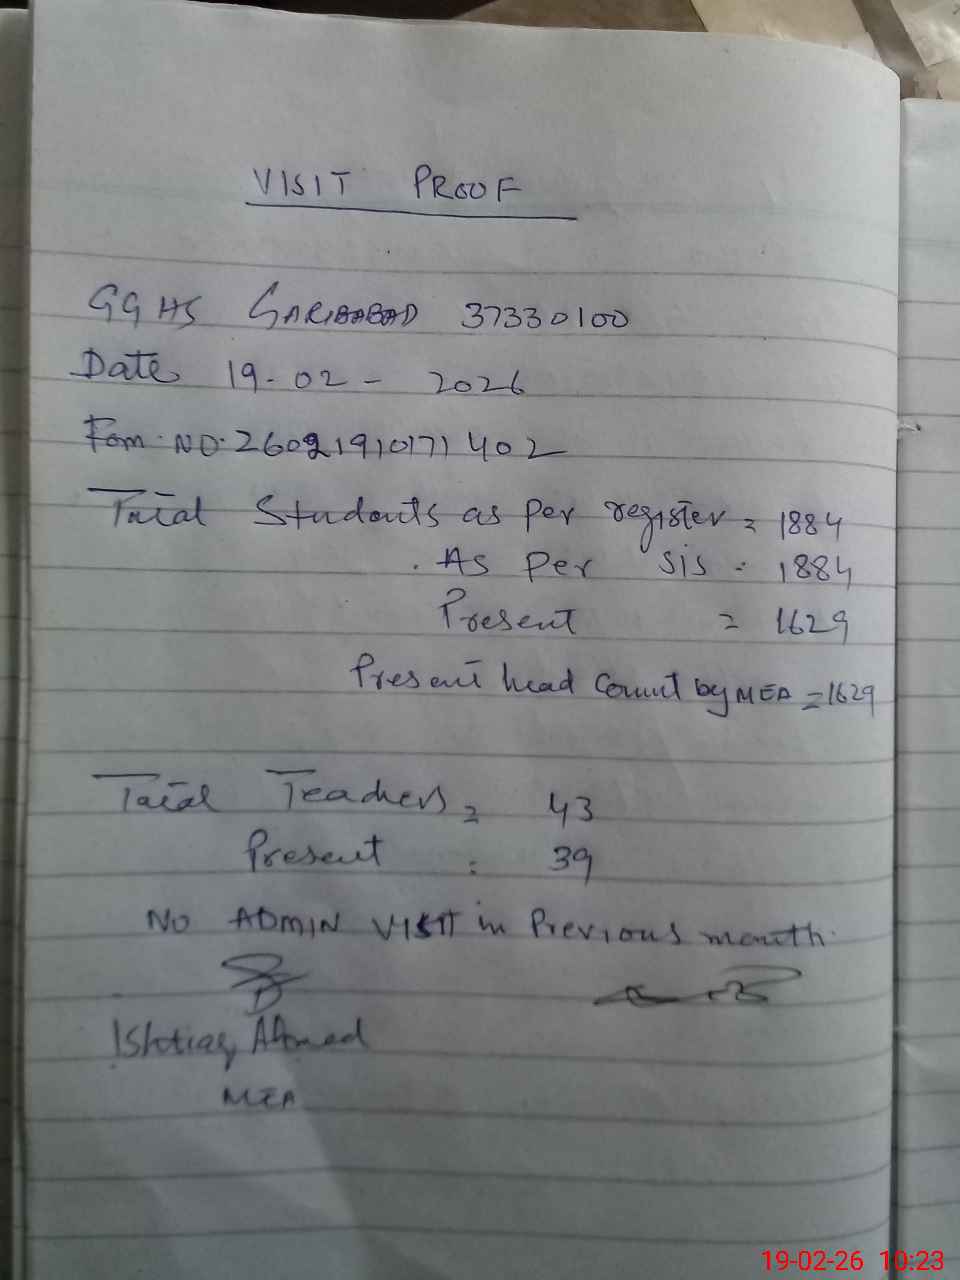 VISIT PROOF
GGHS GARIBABAD 37330100
Date 19-02-2026
Fom. NO. 26021910171402
Total Students as Per register = 1884
As Per sis = 1884
Present = 1629
Present head Count by MEA = 1629
Total Teachers = 43
Present : 39
NO ADMIN VISIT in Previous month.
Ishtiaq Ahmad
MEA
19-02-26 10:23